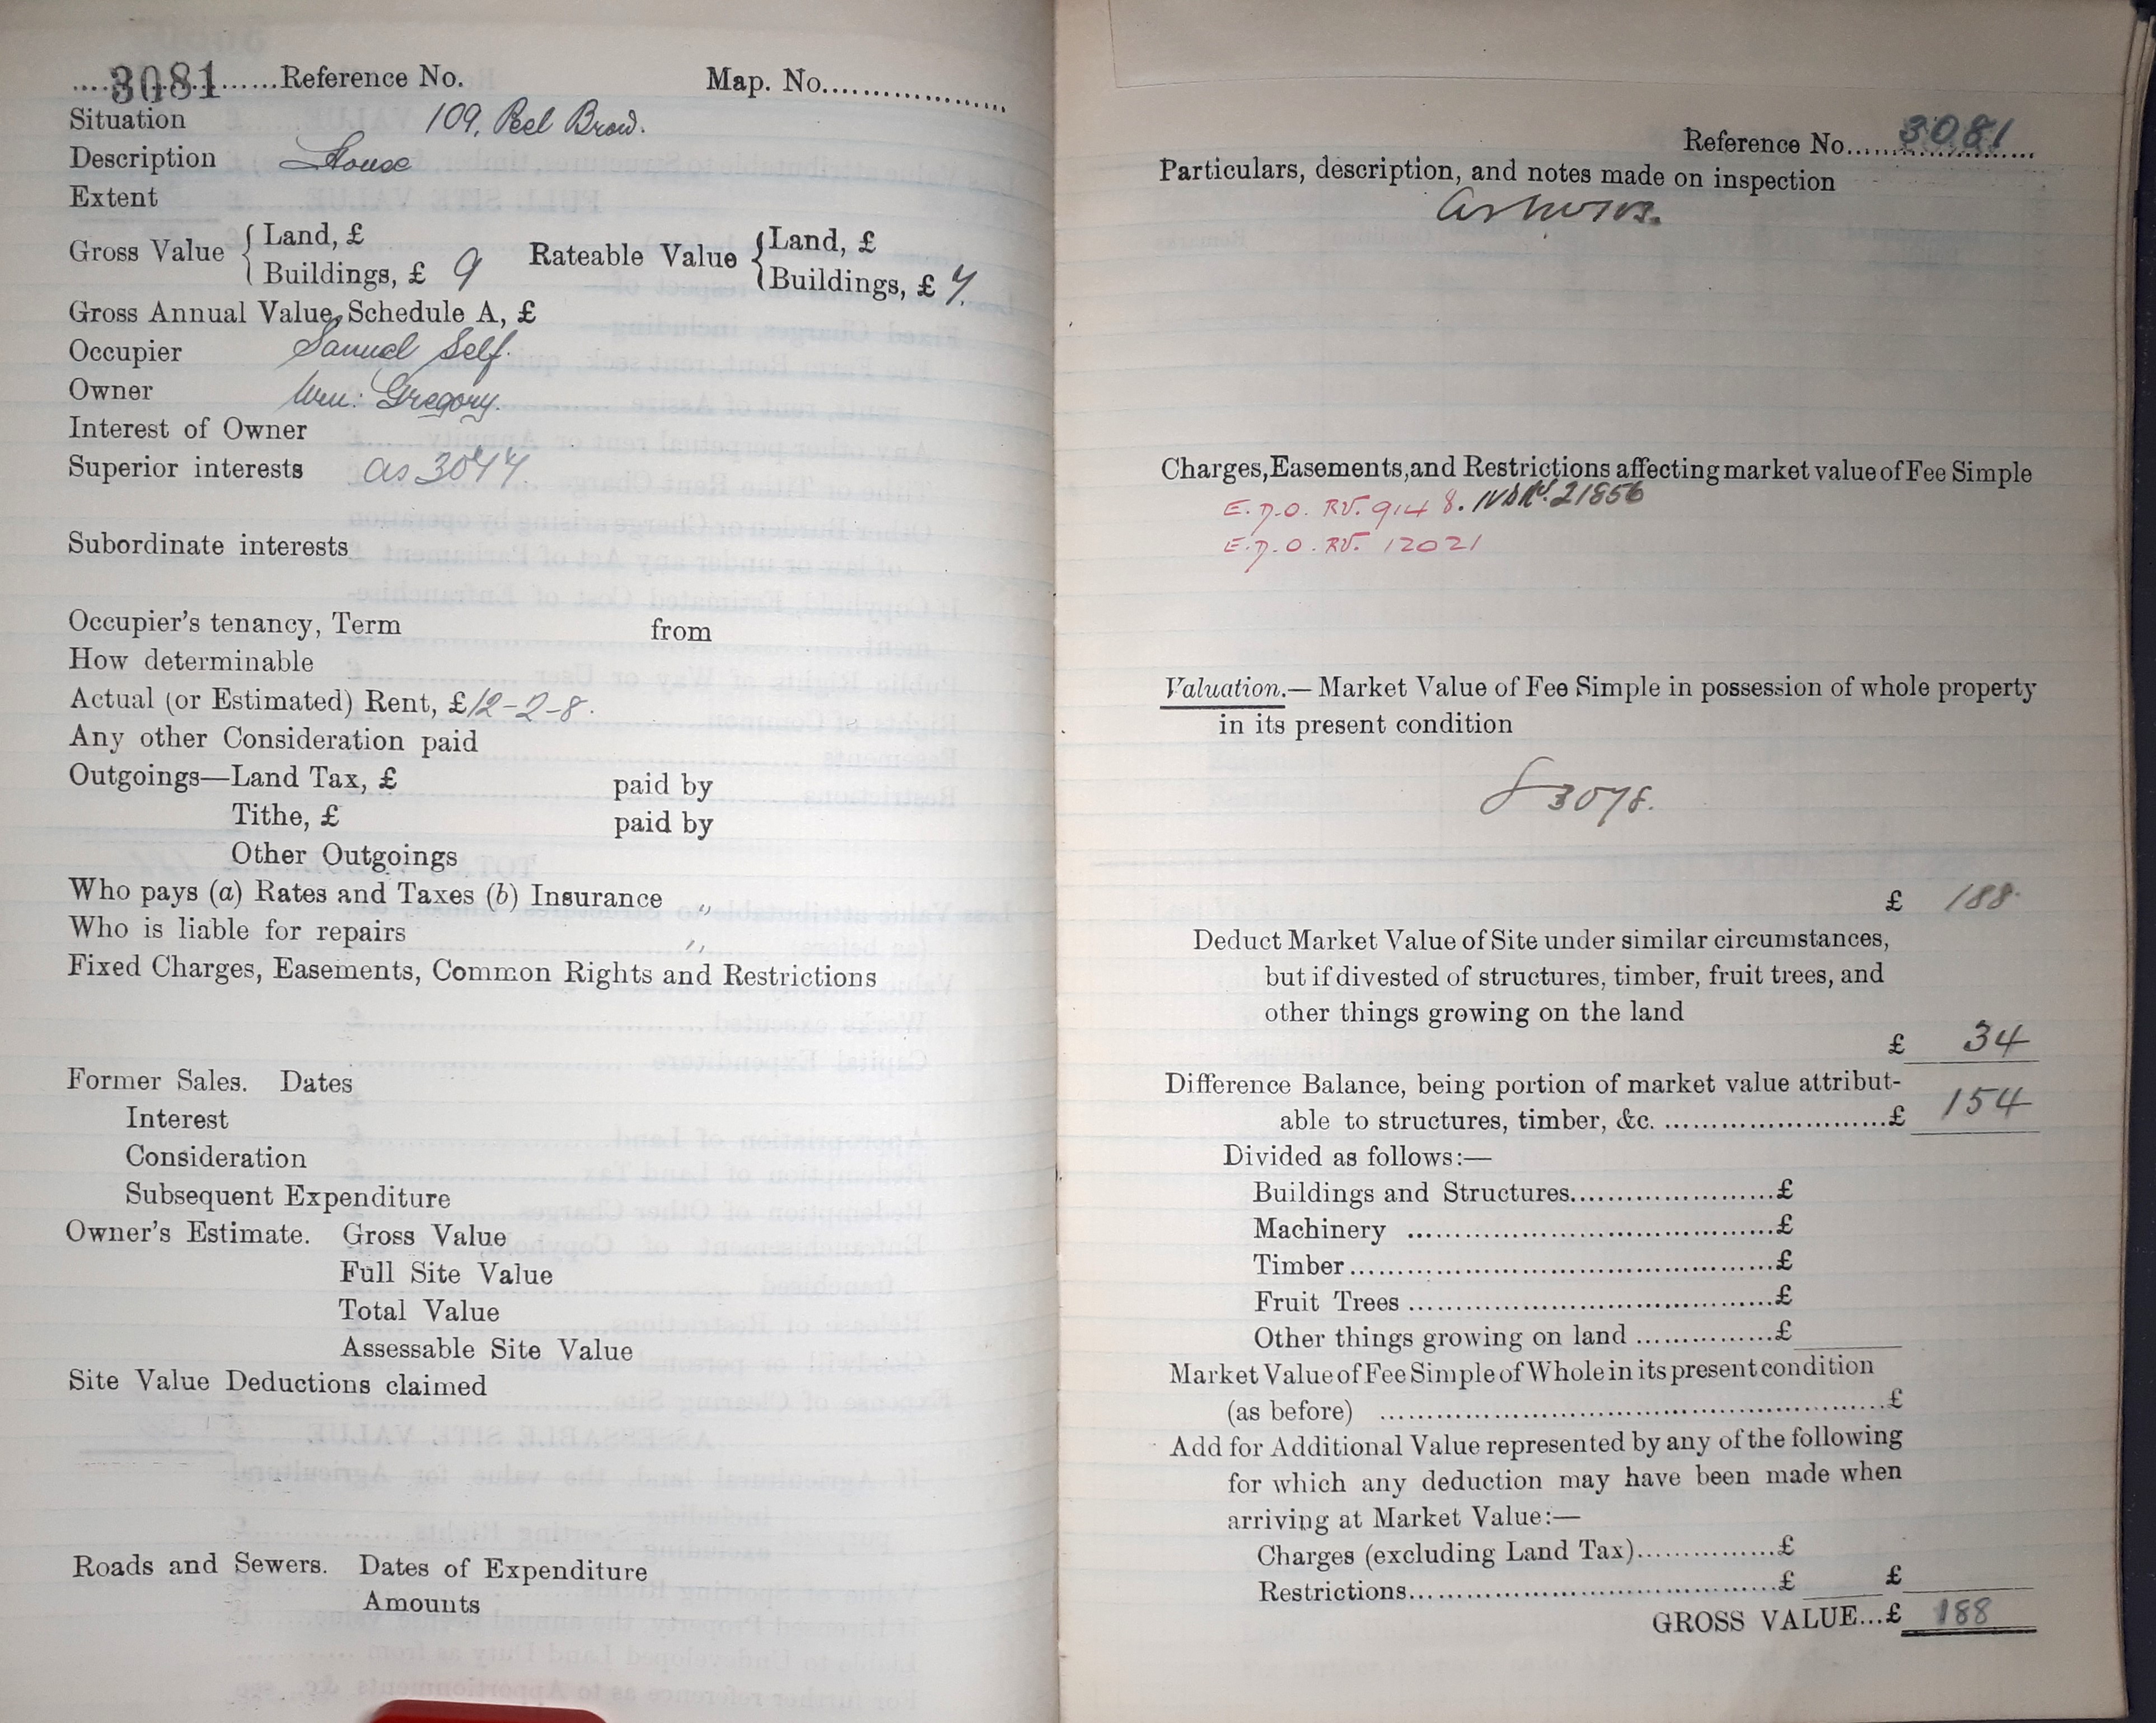 ....3081......Reference No. Map. No....................
Situation 109, Peel Brow.
Description House
Extent
Gross Value { Land, £
Buildings, £ 9
Rateable Value { Land, £
Buildings, £ 7.
Gross Annual Value, Schedule A, £
Occupier Samuel Self.
Owner Wm: Gregory.
Interest of Owner
Superior interests as 3044.
Subordinate interests
Occupier's tenancy, Term from
How determinable
Actual (or Estimated) Rent, £12-2-8.
Any other Consideration paid
Outgoings—Land Tax, £ paid by
Tithe, £ paid by
Other Outgoings
Who pays (a) Rates and Taxes (b) Insurance "
Who is liable for repairs "
Fixed Charges, Easements, Common Rights and Restrictions
Former Sales. Dates
Interest
Consideration
Subsequent Expenditure
Owner's Estimate. Gross Value
Full Site Value
Total Value
Assessable Site Value
Site Value Deductions claimed
Roads and Sewers. Dates of Expenditure
Amounts
Reference No....3081
Particulars, description, and notes made on inspection
Charges, Easements, and Restrictions affecting market value of Fee Simple
E.D.O. RV. 9148. 21856
E.D.O. RV. 12021
Valuation.— Market Value of Fee Simple in possession of whole property
in its present condition
3078.
£ 188.
Deduct Market Value of Site under similar circumstances,
but if divested of structures, timber, fruit trees, and
other things growing on the land
£ 34
Difference Balance, being portion of market value attribut-
able to structures, timber, &c. ........................£ 154
Divided as follows:—
Buildings and Structures......................£
Machinery ......................................£
Timber............................................£
Fruit Trees ......................................£
Other things growing on land ...............£
Market Value of Fee Simple of Whole in its present condition
(as before) ....................................................£
Add for Additional Value represented by any of the following
for which any deduction may have been made when
arriving at Market Value:—
Charges (excluding Land Tax)...............£
Restrictions......................................£ £
GROSS VALUE...£ 188